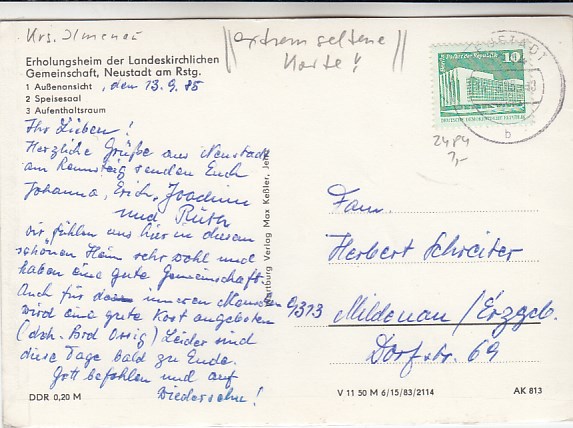 Krs. Ilmenau
extrem seltene
Karte!
Erholungsheim der Landeskirchlichen
Gemeinschaft, Neustadt am Rstg.
1 Außenansicht , den 13.9.85
2 Speisesaal
3 Aufenthaltsraum
Ihr Lieben!
Herzliche Grüße aus Neustadt
am Rennsteig senden Euch
Johanna, Erich, Joachim
und Ruth
wir fühlen uns hier in diesem
schönen Heim sehr wohl und
haben eine gute Gemeinschaft.
Auch für den inneren Menschen
wird eine gute Kost angeboten
(dch. Brd Ossig) Leider sind
diese Tage bald zu Ende.
Gott befohlen und auf
Wiedersehn!
DDR 0,20 M
Wartburg Verlag Max Keßler, Jena
10
DEUTSCHE DEMOKRATISCHE REPUBLIK
NEUSTADT
b
2484
3,-
Fam.
Herbert Schreiter
9313
Mildenau/Erzgeb.
Dorfstr. 69
V 11 50 M 6/15/83/2114
AK 813